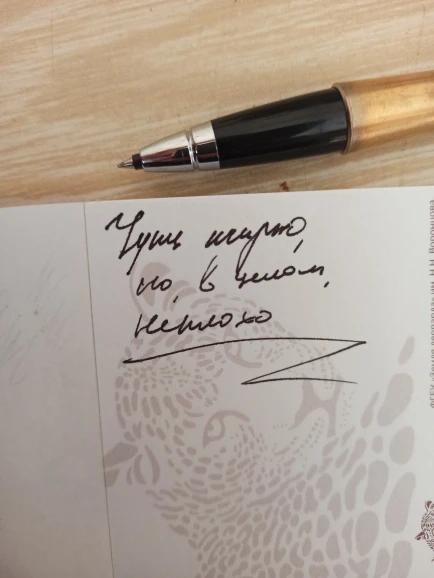 Чуть жирно,
но в целом,
неплохо
ФГБУ «Земля леопарда» им. Н.Н. Воронцова